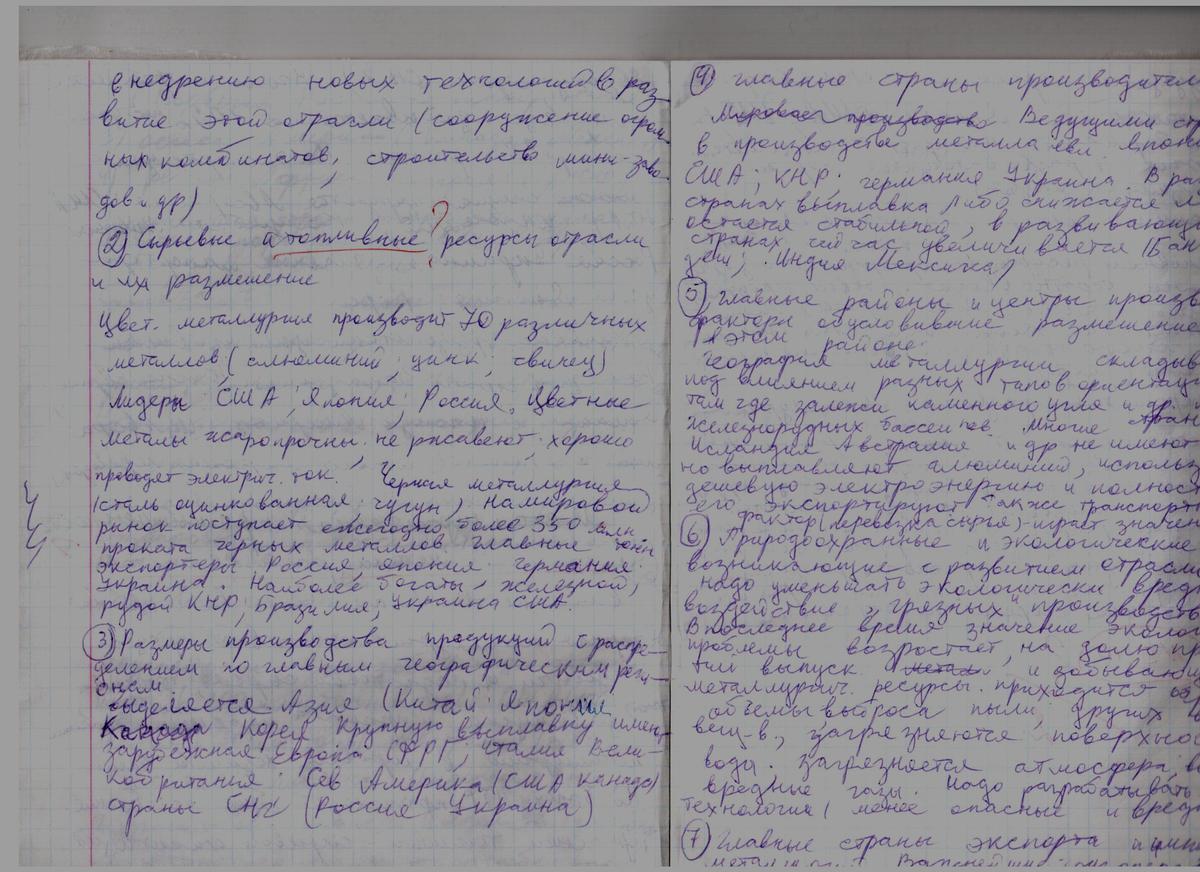 внедрению новых технологий в раз-
витие этой отрасли (сооружение огром
ных комбинатов, строительство мини-заво-
дов и др)
② Сырьевые и топливные ресурсы отрасли
?
и их размешение
Цвет. металлургия производит 70 различных
металлов (алюминий, цинк, свинец)
Лидеры США, Япония, Россия. Цветные
металы жаропрочны, не ржавеют, хорошо
проводят электрич. ток. Черная металлургия
(сталь оцинкованная, чугун) на мировой
рынок поступает ежегодно более 350 млн
проката чёрных металлов главные
экспортеры Россия, япония германия
Украина. Наиболее богаты железной,
рудой КНР, Бразилия, Украина США.
③ Размеры производства продукции с распре-
делением по главным географическим реги-
онам
выделяется Азия (Китай Япония
Корея Крупную выплавку имеют
зарубежная Европа (ФРГ, италия Вели-
кобритания Сев Америка (США канада)
страны СНГ (Россия Украина)
④ главные страны производител
Мировое производство Ведущими ст
в производстве металла явл Япони
США, КНР, германия Украина. В ра
странах выплавка либо снижается
остается стабильной, в развивающи
странах сейчас увеличивается (
Индия Мексика)
⑤ главные районы и центры произв
факторы обусловившие размещение
в этом районе.
география металлургии складыв
под влиянием разных типов ориентац
там где залежи каменного угля и др.
железнорудных бассейнов. Многие
Исландия Австралия и др не имеют
но выплавляют алюминий, использ
дешевую электроэнергию и полност
его экспортируют также транспорт
фактор (перевозка сырья) играет значен
⑥ Природоохранные и экологические
возникающие с развитием отрасли
надо уменьшать экологически вред
воздействие „грязных" производств
В последнее время значение эколог
проблемы возростает, на долю пр
тий выпуск и добывающ
металлургич. ресурсы. приходится
объемы выброса пыли, других
вещ-в, загрязняются поверхнос
вода. загрязняется атмосфера,
вредные газы. Надо разрабатывать
технологии (менее опасные и вред
⑦ Главные страны экспорта и